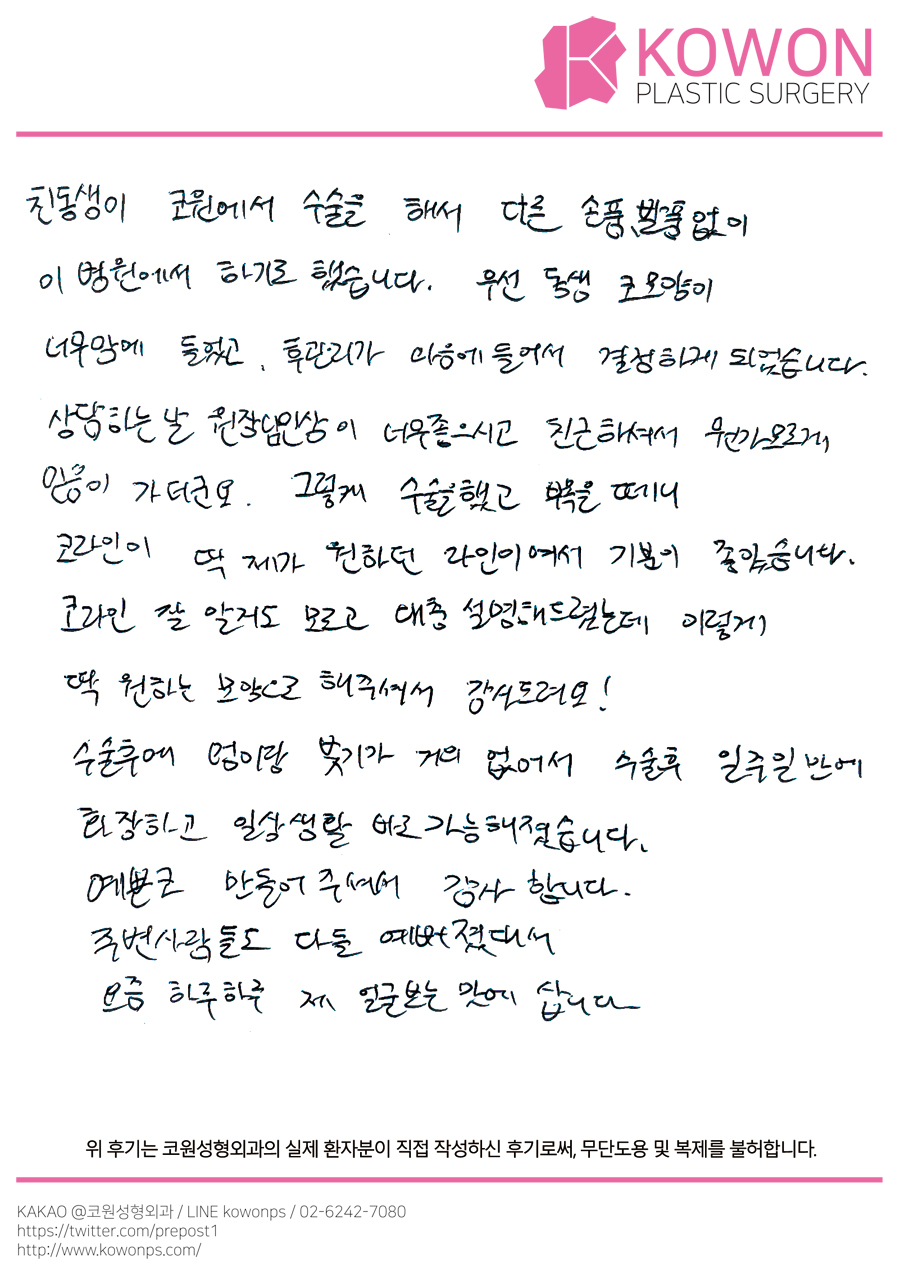 KOWON
PLASTIC SURGERY
친동생이 코원에서 수술을 해서 다른 손품, 발품 없이
이 병원에서 하기로 했습니다. 우선 동생 코모양이
너무맘에 들었고, 후관리가 마음에 들어서 결정하게 되었습니다.
상담하는 날 원장님인상이 너무좋으시고 친근하셔서 뭔가모르게
믿음이 가더군요. 그렇게 수술을했고 부목을 떼니
코라인이 딱 제가 원하던 라인이여서 기분이 좋았습니다.
코라인 잘 알지도 모르고 대충 설명해드렸는데 이렇게
딱 원하는 모양으로 해주셔서 감사드려요!
수술후에 멍이랑 붓기가 거의 없어서 수술후 일주일 반에
화장하고 일상생활 바로가능해졌습니다.
예쁜코 만들어 주셔서 감사 합니다.
주변사람들도 다들 예뻐졌대서
요즘 하루하루 제 얼굴보는 맛에 삽니다
위 후기는 코원성형외과의 실제 환자분이 직접 작성하신 후기로써, 무단도용 및 복제를 불허합니다.
KAKAO @코원성형외과 / LINE kowonps / 02-6242-7080
https://twitter.com/prepost1
http://www.kowonps.com/